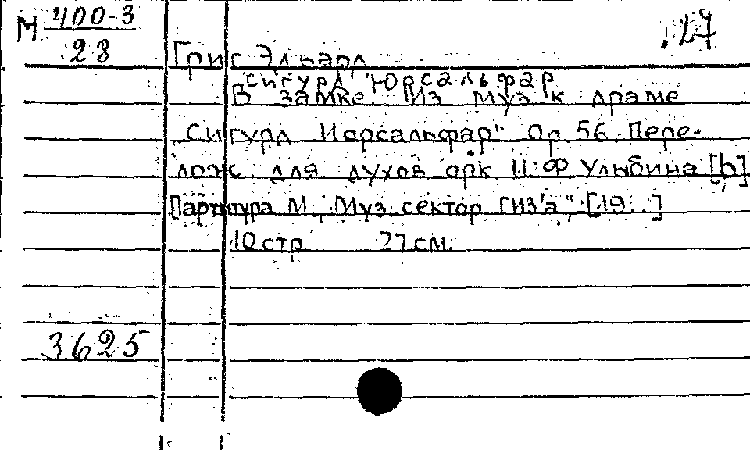 М 400-3
28
.27
Григ Эдвард
Сигурд Юрсальфар
В замке. Из муз к драме
"Сигурд Иорсальфар" Ор 56. Пере-
лож для духов орк Ульбина [b]
Партитура М., Муз. сектор Гиз'а", [19...]
10 стр 27 см.
3625